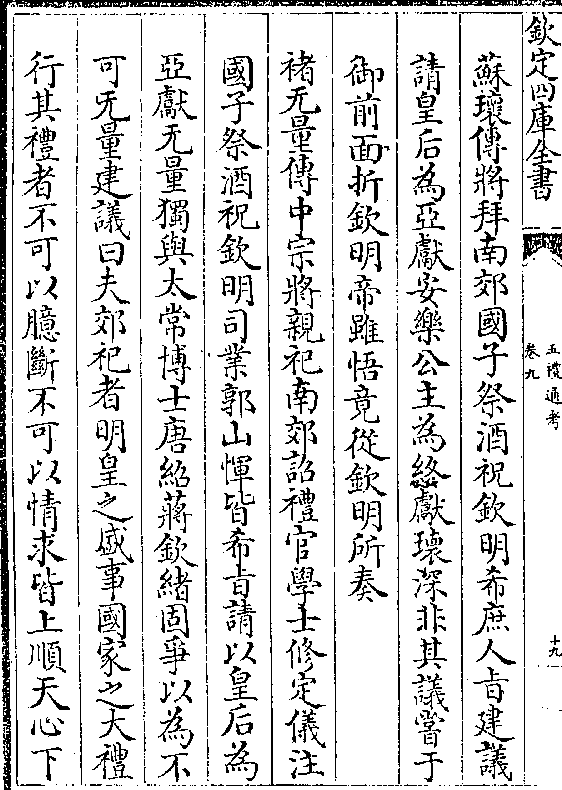 欽定四庫全書
五禮通考
卷九
十九
蘇瓌傳將拜南郊國子祭酒祝欽明希庶人㫖建議
請皇后為亞獻安樂公主為終獻瓌深非其議嘗于
御前面折欽明帝雖悟竟從欽明所奏
禇无量傳中宗將親祀南郊詔禮官學士修定儀注
國子祭酒祝欽明司業郭山惲皆希㫖請以皇后為
亞獻无量獨與太常博士唐紹蔣欽緒固爭以為不
可无量建議曰夫郊祀者明皇之盛事國家之大禮
行其禮者不可以臆斷不可以情求皆上順天心下